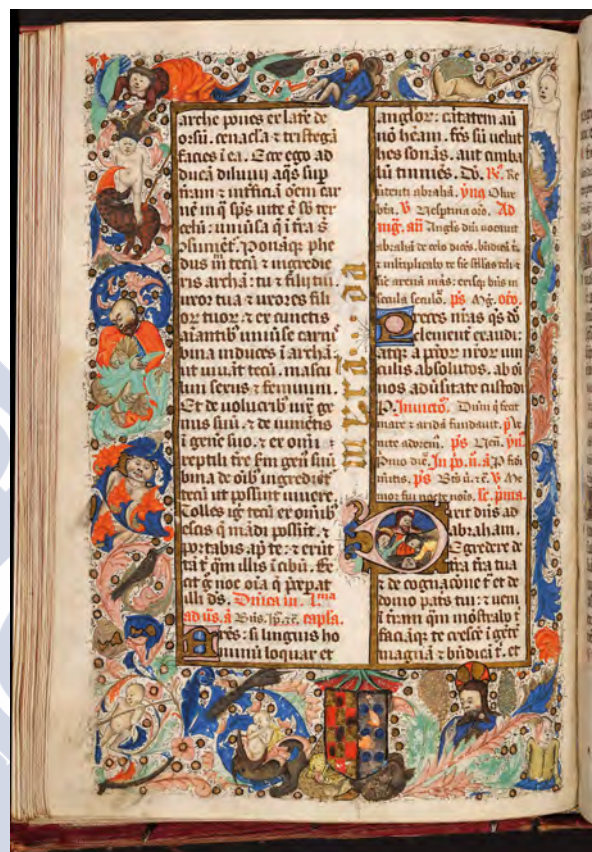 arche pones et latẽ de
orsũ. cenacĺa ⁊ tristegã
facies ĩ ea. Ecce ego ad
ducã diluuii aq̃s sup
trãm ⁊ intficiã oẽm car
nẽ in q̃ sp̃s uite ẽ sb̃ ter
celũ: uniũsa q̃ ĩ tra s̃
9sumẽt̃. Ponãq̃ phe
dus m̃ tecũ ⁊ ingredie
ris archã: tu ⁊ filij tui
uxor tua ⁊ uxores fili
oꝝ tuoꝝ: ⁊ ex cunctis
aĩantib9 uniũse carnis
bina induces ĩ archã:
ut uiuãt tecũ. mascu
lini sexus ⁊ feminini.
Et de uolucrib9 iux̃ ge
nus suũ. ⁊ de iumẽtis
ĩ genẽ suo. ⁊ ex omi
reptili tre sm̃ gen9 suũ
bina de oĩb9 ingrediẽt̃
tecũ ut possint uiuere.
Tolles ig̃ tecũ ex omib9
escis q̃ mãdi possũt. ⁊
portabis ap̃ te: ⁊ erũt
tã t̃ q̃m illis ĩ cibũ. Fe
cit g̃ noe oĩa q̃ p̃cepat
illi ds̃. Dñica ĩii. l.ma
ad ũs. ã capl̃a.
Fr̃es: si linguis ho
minũ loquar et
angloꝝ: caritatem aũ
nõ hẽam. fc̃s sũ uelut
hes sonãs. aut cimba
lũ tinniẽs. Dõ. R̃. Re
ñtenti abrahã. ymg̃
V̾ Vesptina orõ. Ad
mg̃. añ Angl̃s dñi uocauit
abrahã de celo dicẽs. bñdicã t̃
⁊ multiplicabo te sic̃ stellas celi ⁊
sic̃ arenã maris: eritq̃ dñs in
secula seculõ. ps̃ Mg̃. orõ.
Preces nr̃as q̃s dõ
clement̃ exaudi:
atq̃ a pctõꝝ nr̃oꝝ uin
culis absolutos. ab oĩ
nos aduĩsitate custodi
P. Inuictõ. Dñm q̃ fecit
mare ⁊ aridã fundauit. p̃ Ve
nite adorem9. ps̃ Veñ. ym̃.
Pmo die. In p̃o. ñ. ã
ps̃ V̾ Me
mor fui nocte nois. le. p̃ma.
Dixit dñs ad
abraham.
Egredere de
tra tua
⁊ de cognacõne t̃ et de
domo pats̃ tui: ⁊ ueni
ĩ tram q̃m mõstrabo t̃
faciãq̃ te crescẽ ĩ gẽtẽ
magnã ⁊ bñdicã t̃. et